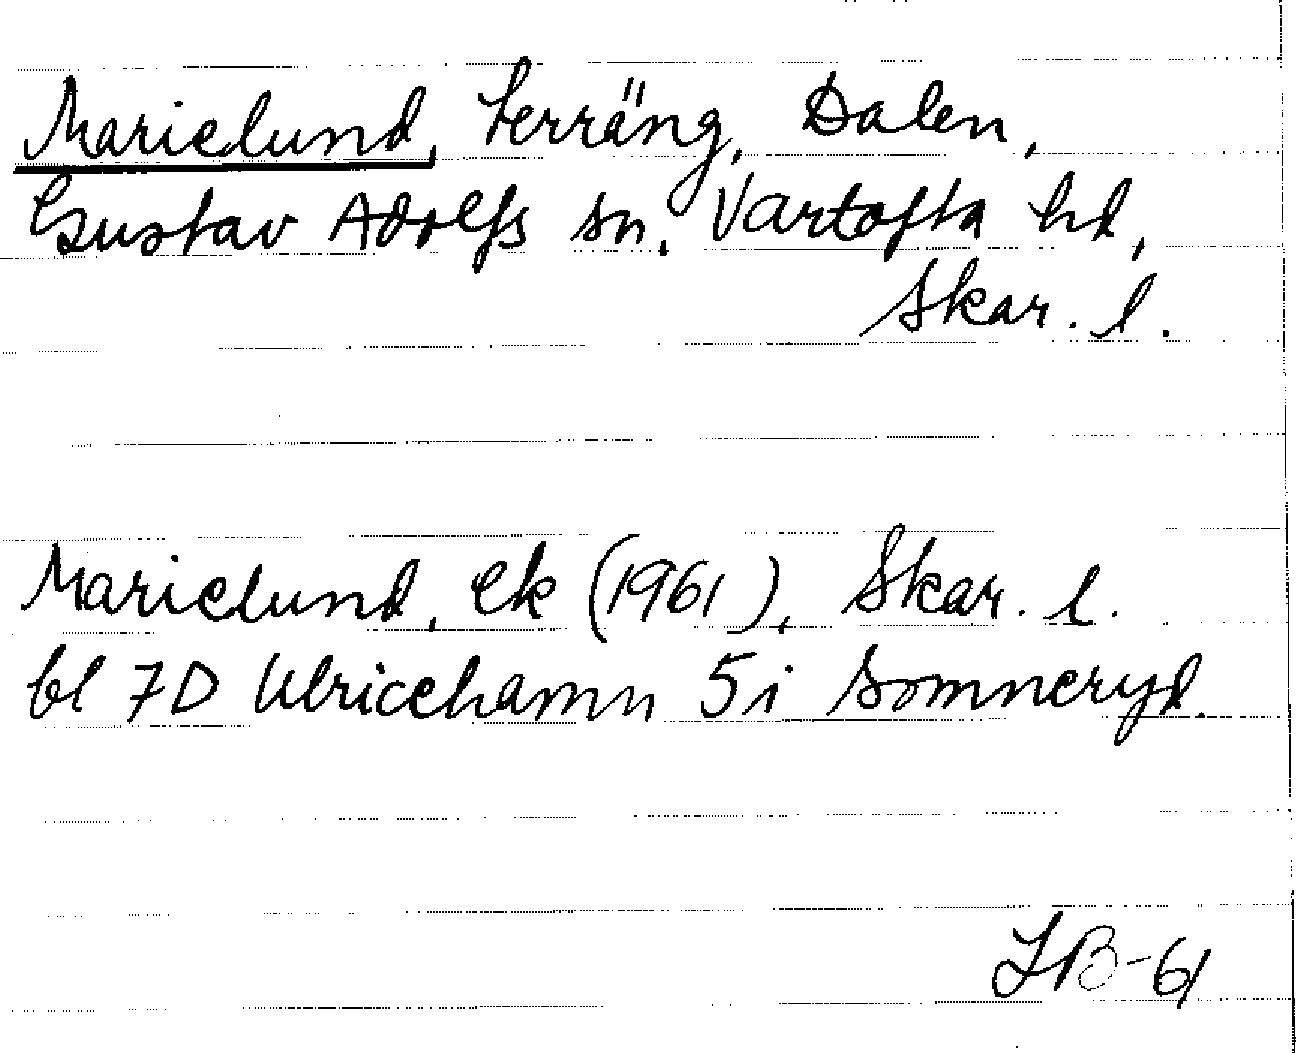 Marielund, terräng, Dalen,
Gustav Adolfs sn, Vartofta hd,
Skar. l.
Marielund, ek (1961), Skar. l.
bl 7D Ulricehamn 5i Somneryd.
IB-61